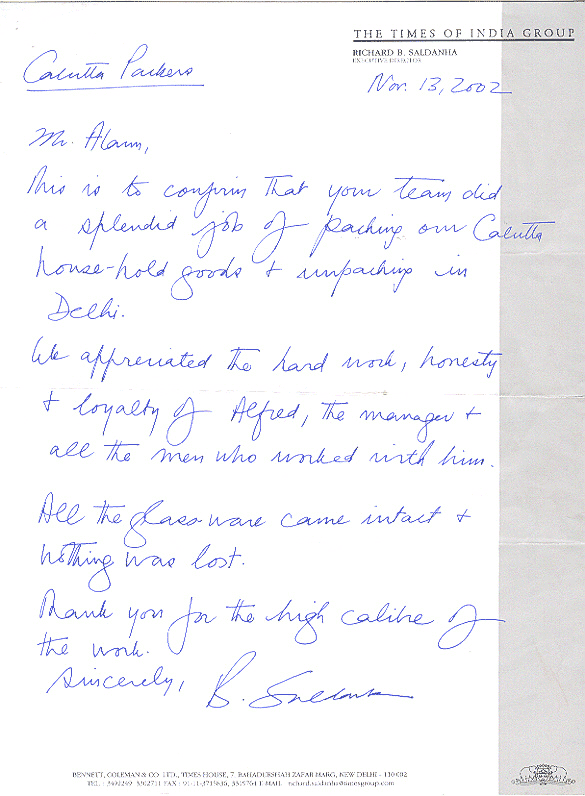 THE TIMES OF INDIA GROUP
RICHARD B. SALDANHA
EXECUTIVE DIRECTOR
Calcutta Packers
Nov. 13, 2002
Mr. Alam,
This is to confirm that your team did
a splendid job of packing our Calcutta
house-hold goods + unpacking in
Delhi.
We appreciated the hard work, honesty
+ loyalty of Alfred, the manager +
all the men who worked with him.
All the glassware came intact +
nothing was lost.
Thank you for the high calibre of
the work.
Sincerely, B. Saldanha
BENNETT, COLEMAN & CO. LTD., TIMES HOUSE, 7, BAHADURSHAH ZAFAR MARG, NEW DELHI - 110 002
TEL : 3492299 3302711 FAX : 91-11-3715836, E-MAIL